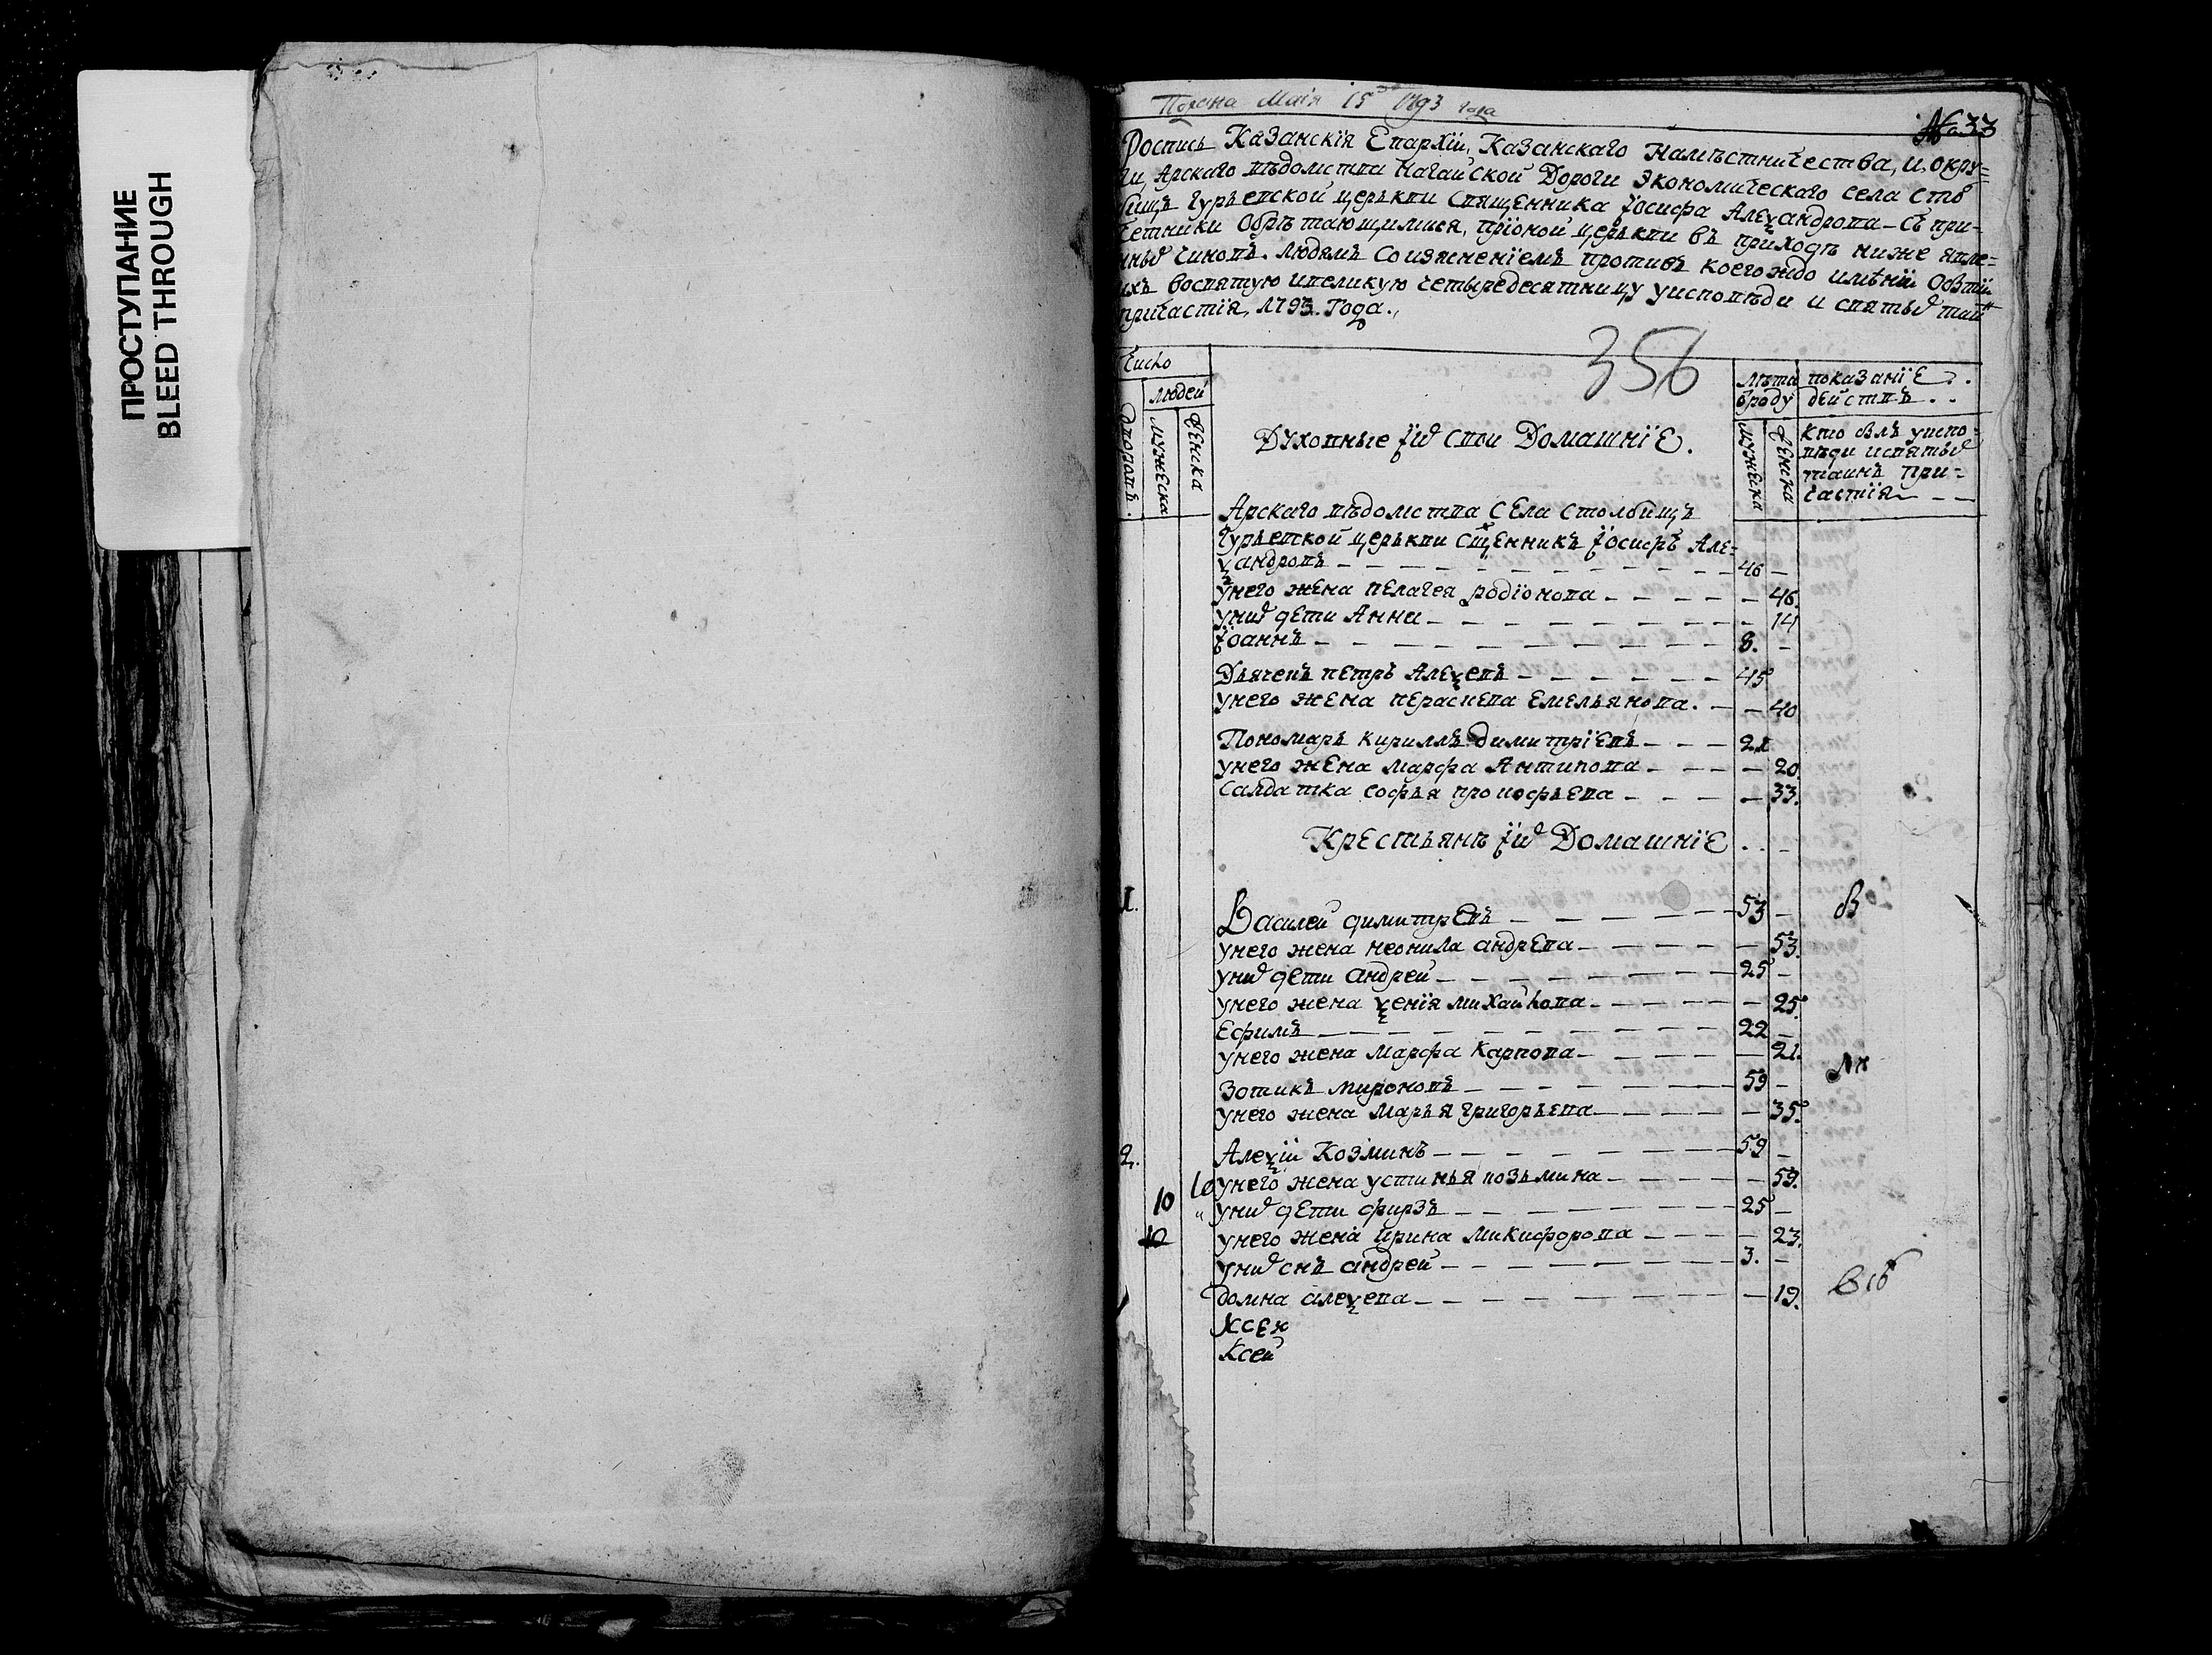 ПРОСТУПАНИЕ
BLEED THROUGH
Подана Маія 15 1793 года
№ 33
Роспись Казанскія Епархїи, Казанскаго Намѣстничества, и окру=
ги, Арскаго вѣдомства Нагайской Дороги Экономическаго села Стол
бищъ Гурьевской церькви Священника Їосифа Алеѯандрова съ при-
четники Обрѣтающимися, прионой церькви въ приходѣ ниже явле=
нныхъ чиновъ людямъ Соизясненїемъ противъ коегождо имѣнїи
ихъ восвятую ивеликую четыредесятницу уисповѣди и святыхъ таи
причастїя, 1793. Года.
356
Число
людей
дворовъ
мужеска
женска
Духовные їихъ свои Домашнїе.
Лѣта
ѿроду
мужеска
женска
показанїе
действъ
Кто былъ уиспо=
вѣди исвятыхъ
таинъ при=
частїя
Арскаго вѣдомства Села Столбищъ
Гурьевской церькви Сщенникъ Їосифъ Але=
ѯандровъ 46
унего жена пелагея родїонова 46.
унихъ дети Анна 14
Їоаннъ 8.
Дьячекъ петръ Алеѯевъ 45
унего жена пераскева Емельянова. 40
Пономарь кириллъ димитрїевъ 21
унего жена Марфа Антипова 20
Салдатка софья прокофьева 33.
Крестьянъ їихъ Домашнїе
1. Василеи димитревъ 53 В
унего жена неонила андрева 53.
унихъ дети андреи 25
унего жена ѯенїя михаилова 25
Ефимъ 22
унего жена Марфа Карпова 21.
Зотикъ мироновъ 59
унего жена Марья григорьева 35.
2. Алеѯїи Козминъ 59
унего жена устинья козьмина 59.
10 10
унихъ дети фирзъ 25
12 унего жена ирина Микифорова 23.
унихъ снъ андреи 3.
домна алеѯева 19.
Ксен
Ксеи